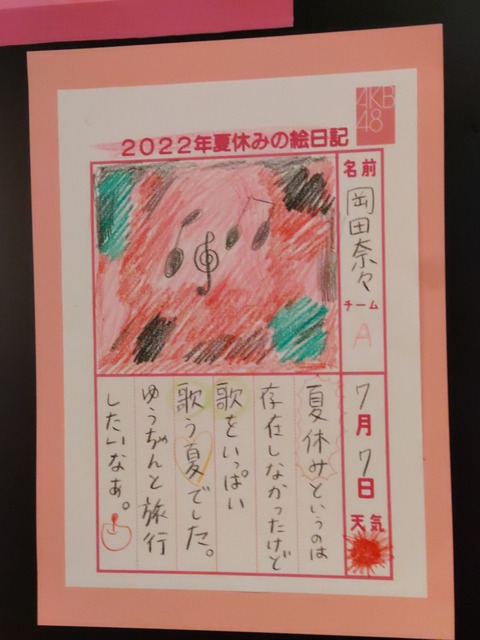 AKB
48
2022年夏休みの絵日記
名前
岡田奈々
チーム
A
7月7日
天気
夏休みというのは
存在しなかったけど
歌をいっぱい
歌う夏でした。
ゆうちゃんと旅行
したいなぁ。